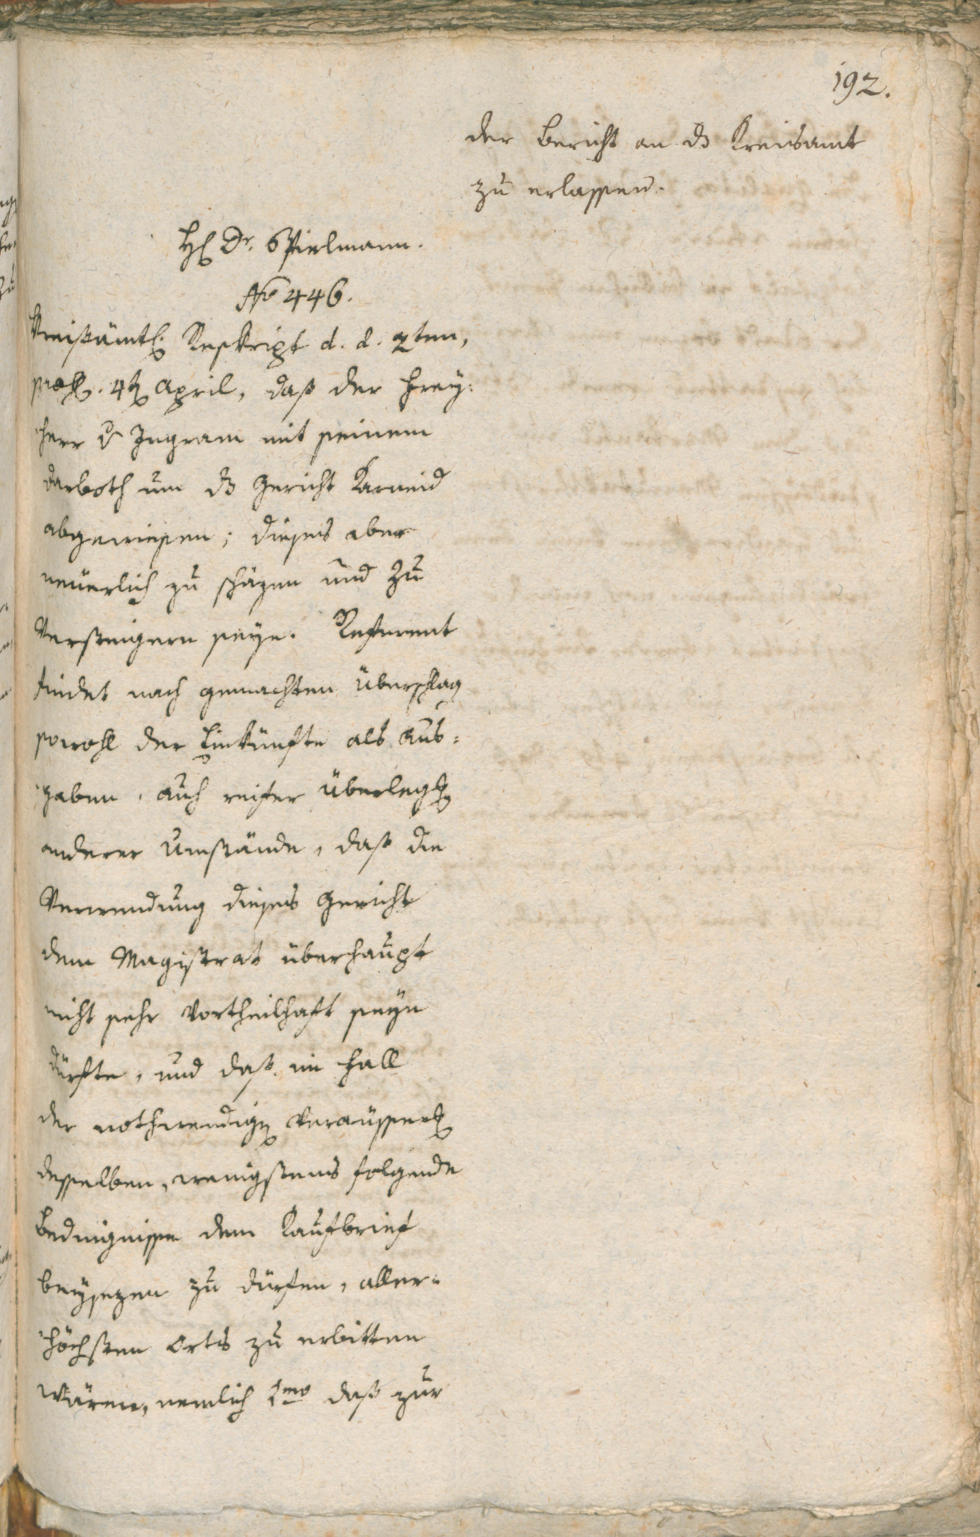 192.
der Bericht an das Kreisamt
zu erlassen.
H Dr. Spielmann.
No 446.
Kreisämtl. Reskript d. d. 2ten,
April, daß der Frey-
herr v Ingram mit seinem
Anboth um das Gericht Karneid
abgewiesen; dieses aber
neuerlich zu schäzen und zu
Versteigern seye. Referent
findet nach gemachten Überschlag
sowohl der Einkünfte als Aus-
gaben, auch reifer Überlegg
anderer Umstände, daß die
Verwendung dieses Gericht
dem Magistrat überhaupt
nicht sehr vortheilhaft seyn
dürfte, und daß im Fall
der nothwendign Veräusserg
desselben, wenigstens folgende
Bedingnisse dem Kaufbrief
beysezen zu dürfen, aller-
höchsten Orts zu erbitten
wären, nemlich 1mo daß zur